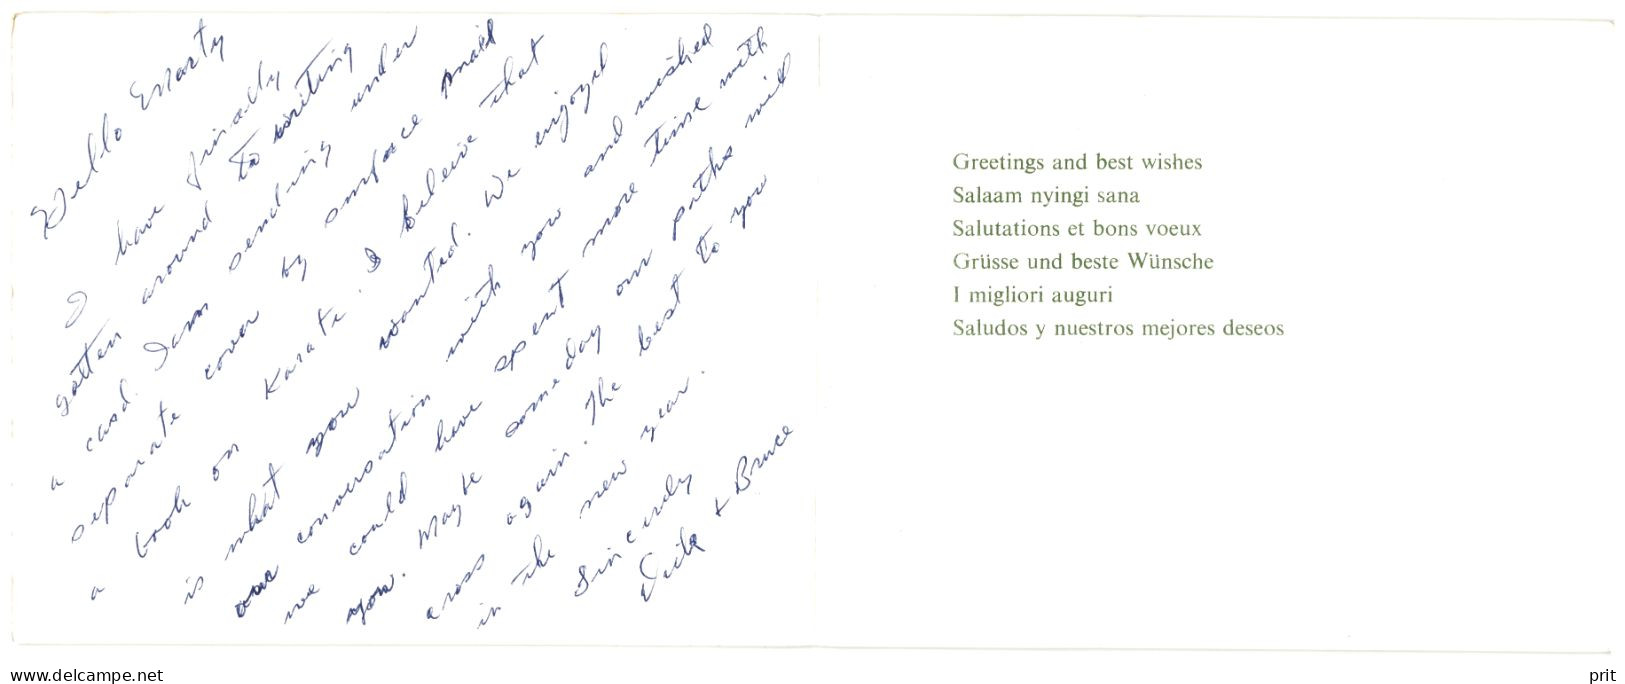 Hello Marty
I have finally
gotten around to writing
a card. I am sending under
separate cover by surface maild
a book on Karate. I beleive that
is what you wanted. We enjoyed
our conversation with you and wished
we could have spent more time with
you. Maybe someday our paths will
cross again. The best to you
in the new year.
Sincerely
& Bruce
Greetings and best wishes
Salaam nyingi sana
Salutations et bons voeux
Grüsse und beste Wünsche
I migliori auguri
Saludos y nuestros mejores deseos
www.delcampe.net
prit